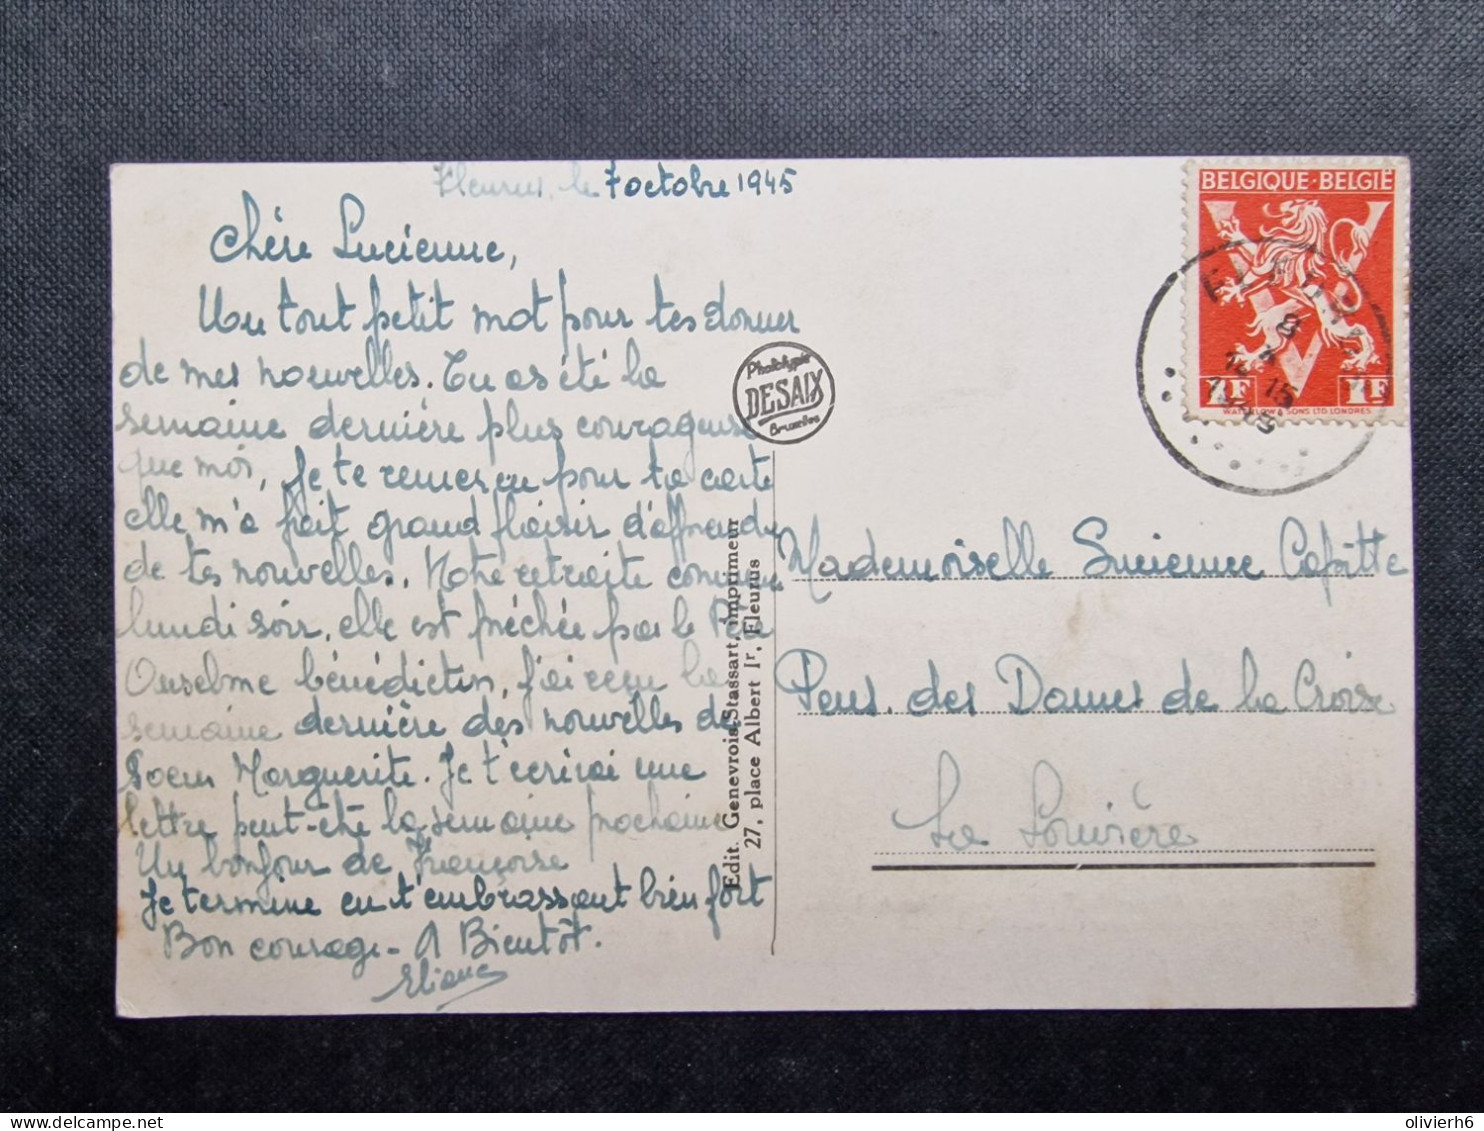 Fleurus, le 7 octobre 1945
Chère Lucienne,
Un tout petit mot pour tes donner
de mes nouvelles. Tu as été la
semaine dernière plus courageuse
que moi, Je te remercie pour ta carte
elle m'a fait grand plaisir d'apprendre
de tes nouvelles. Notre retraite commence
lundi soir, elle est prêchée par le Père
bénédictin, j'ai reçu la
semaine dernière des nouvelles de
Soeur Marguerite. Je t'écrirai une
lettre peut-être la semaine prochaine
Un bonjour de Françoise
Je termine en t'embrassant bien fort
Bon courage - A Bientôt.
Eliane
Phototypie
DESAIX
Bruxelles
Edit. Genevrois-Stassart, imprimeur
27, place Albert Ir, Fleurus
BELGIQUE·BELGIË
1F 1F
WATERLOW & SONS LTD. LONDRES
Mademoiselle Lucienne Capitte
Pens. des Dames de la Croix
La Louvière
olivierh6